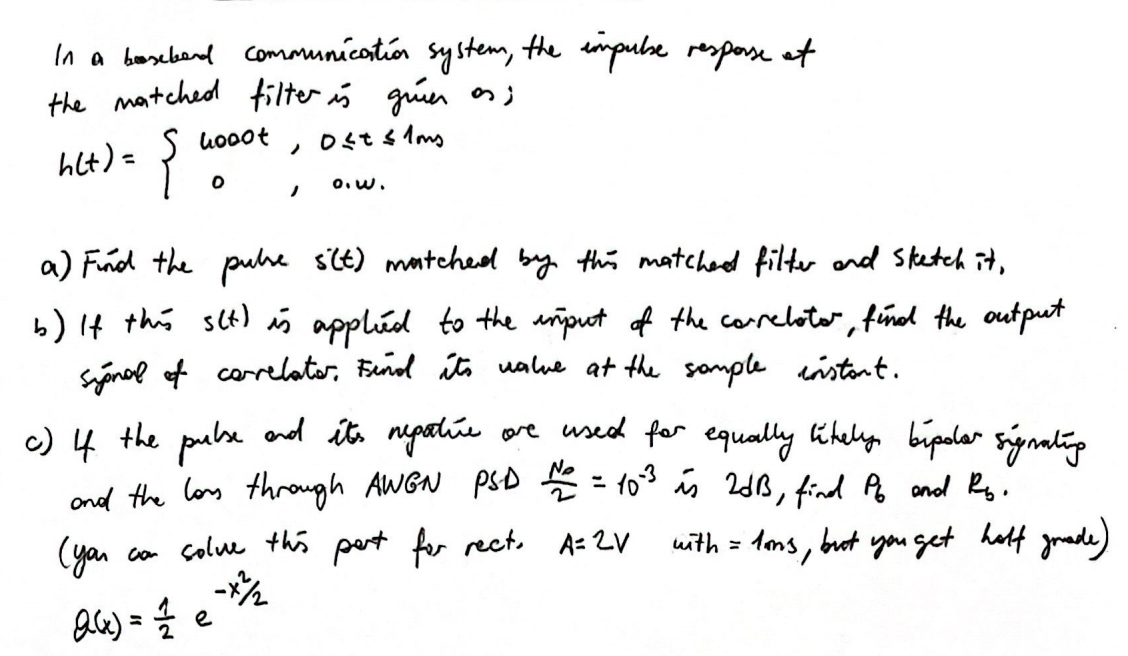 In a baseband communication system, the impulse response of
the matched filter is given as;
h(t) = { 4000t , 0 ≤ t ≤ 1ms
0 , o.w.
a) Find the pulse s(t) matched by this matched filter and sketch it.
b) If this s(t) is applied to the input of the correlator, find the output
signal of correlator. Find its value at the sample instant.
c) If the pulse and its negative are used for equally likely bipolar signaling
and the loss through AWGN PSD No/2 = 10^-3 is 2dB, find Pb and Rb.
(you can solve this part for rect. A = 2V with = 1ms, but you get half grade)
Q(x) = 1/2 e^(-x^2/2)